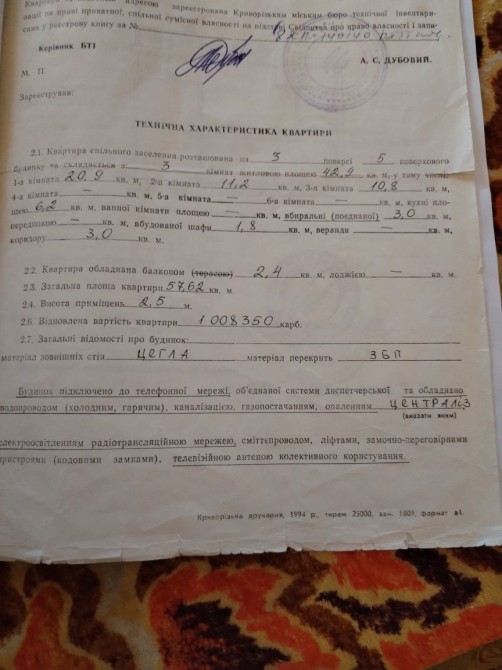 адресою зареєстрована Криворізьким міським бюро технічної інвентари-
зації на праві приватної, спільної сумісної власності на підставі Свідоцтва про право власності і запи-
сана у реєстрову книгу за №
Керівник БТІ
А. С. ДУБОВИЙ.
М. П.
Зареєстрував:
ТЕХНІЧНА ХАРАКТЕРИСТИКА КВАРТИРИ
2.1. Квартира спільного заселення розташована на 3 поверсі 5 поверхового
будинку та складається з 3 кімнат житловою площею 42,9 кв. м, у тому числі:
1-а кімната 20,9 кв. м, 2-а кімната 11,2 кв. м, 3-я кімната 10,8 кв. м,
4-а кімната — кв. м, 5-а кімната — 6-а кімната — кв. м, кухні пло-
щею 6,2 кв. м, ванної кімнати площею — кв. м, вбиральні (поєднаної) 3,0 кв. м,
передпокою — кв. м, вбудованої шафи 1,8 кв. м, веранди — кв. м,
коридору 3,0 кв. м.
2.2. Квартира обладнана балконом (терасою) 2,4 кв. м, лоджією — кв. м.
2.3. Загальна площа квартири 57,62 кв. м.
2.4. Висота приміщень 2,5 м.
2.6. Відновлена вартість квартири 1 008350 карб.
2.7. Загальні відомості про будинок:
матеріал зовнішніх стін ЦЕГЛА матеріал перекрить ЗБП
Будинок підключено до телефонної мережі, об'єднаної системи диспетчерської та обладнано
водопроводом (холодним, гарячим), каналізацією, газопостачанням, опаленням ЦЕНТРАЛЬЗ
(вказати яким)
електроосвітленням радіотрансляційною мережею, сміттєпроводом, ліфтами, замочно-переговірними
пристроями (кодовими замками), телевізійною антеною колективного користування.
Криворізька друкарня, 1994 р., тираж 25000, зам. 1809, формат а4.